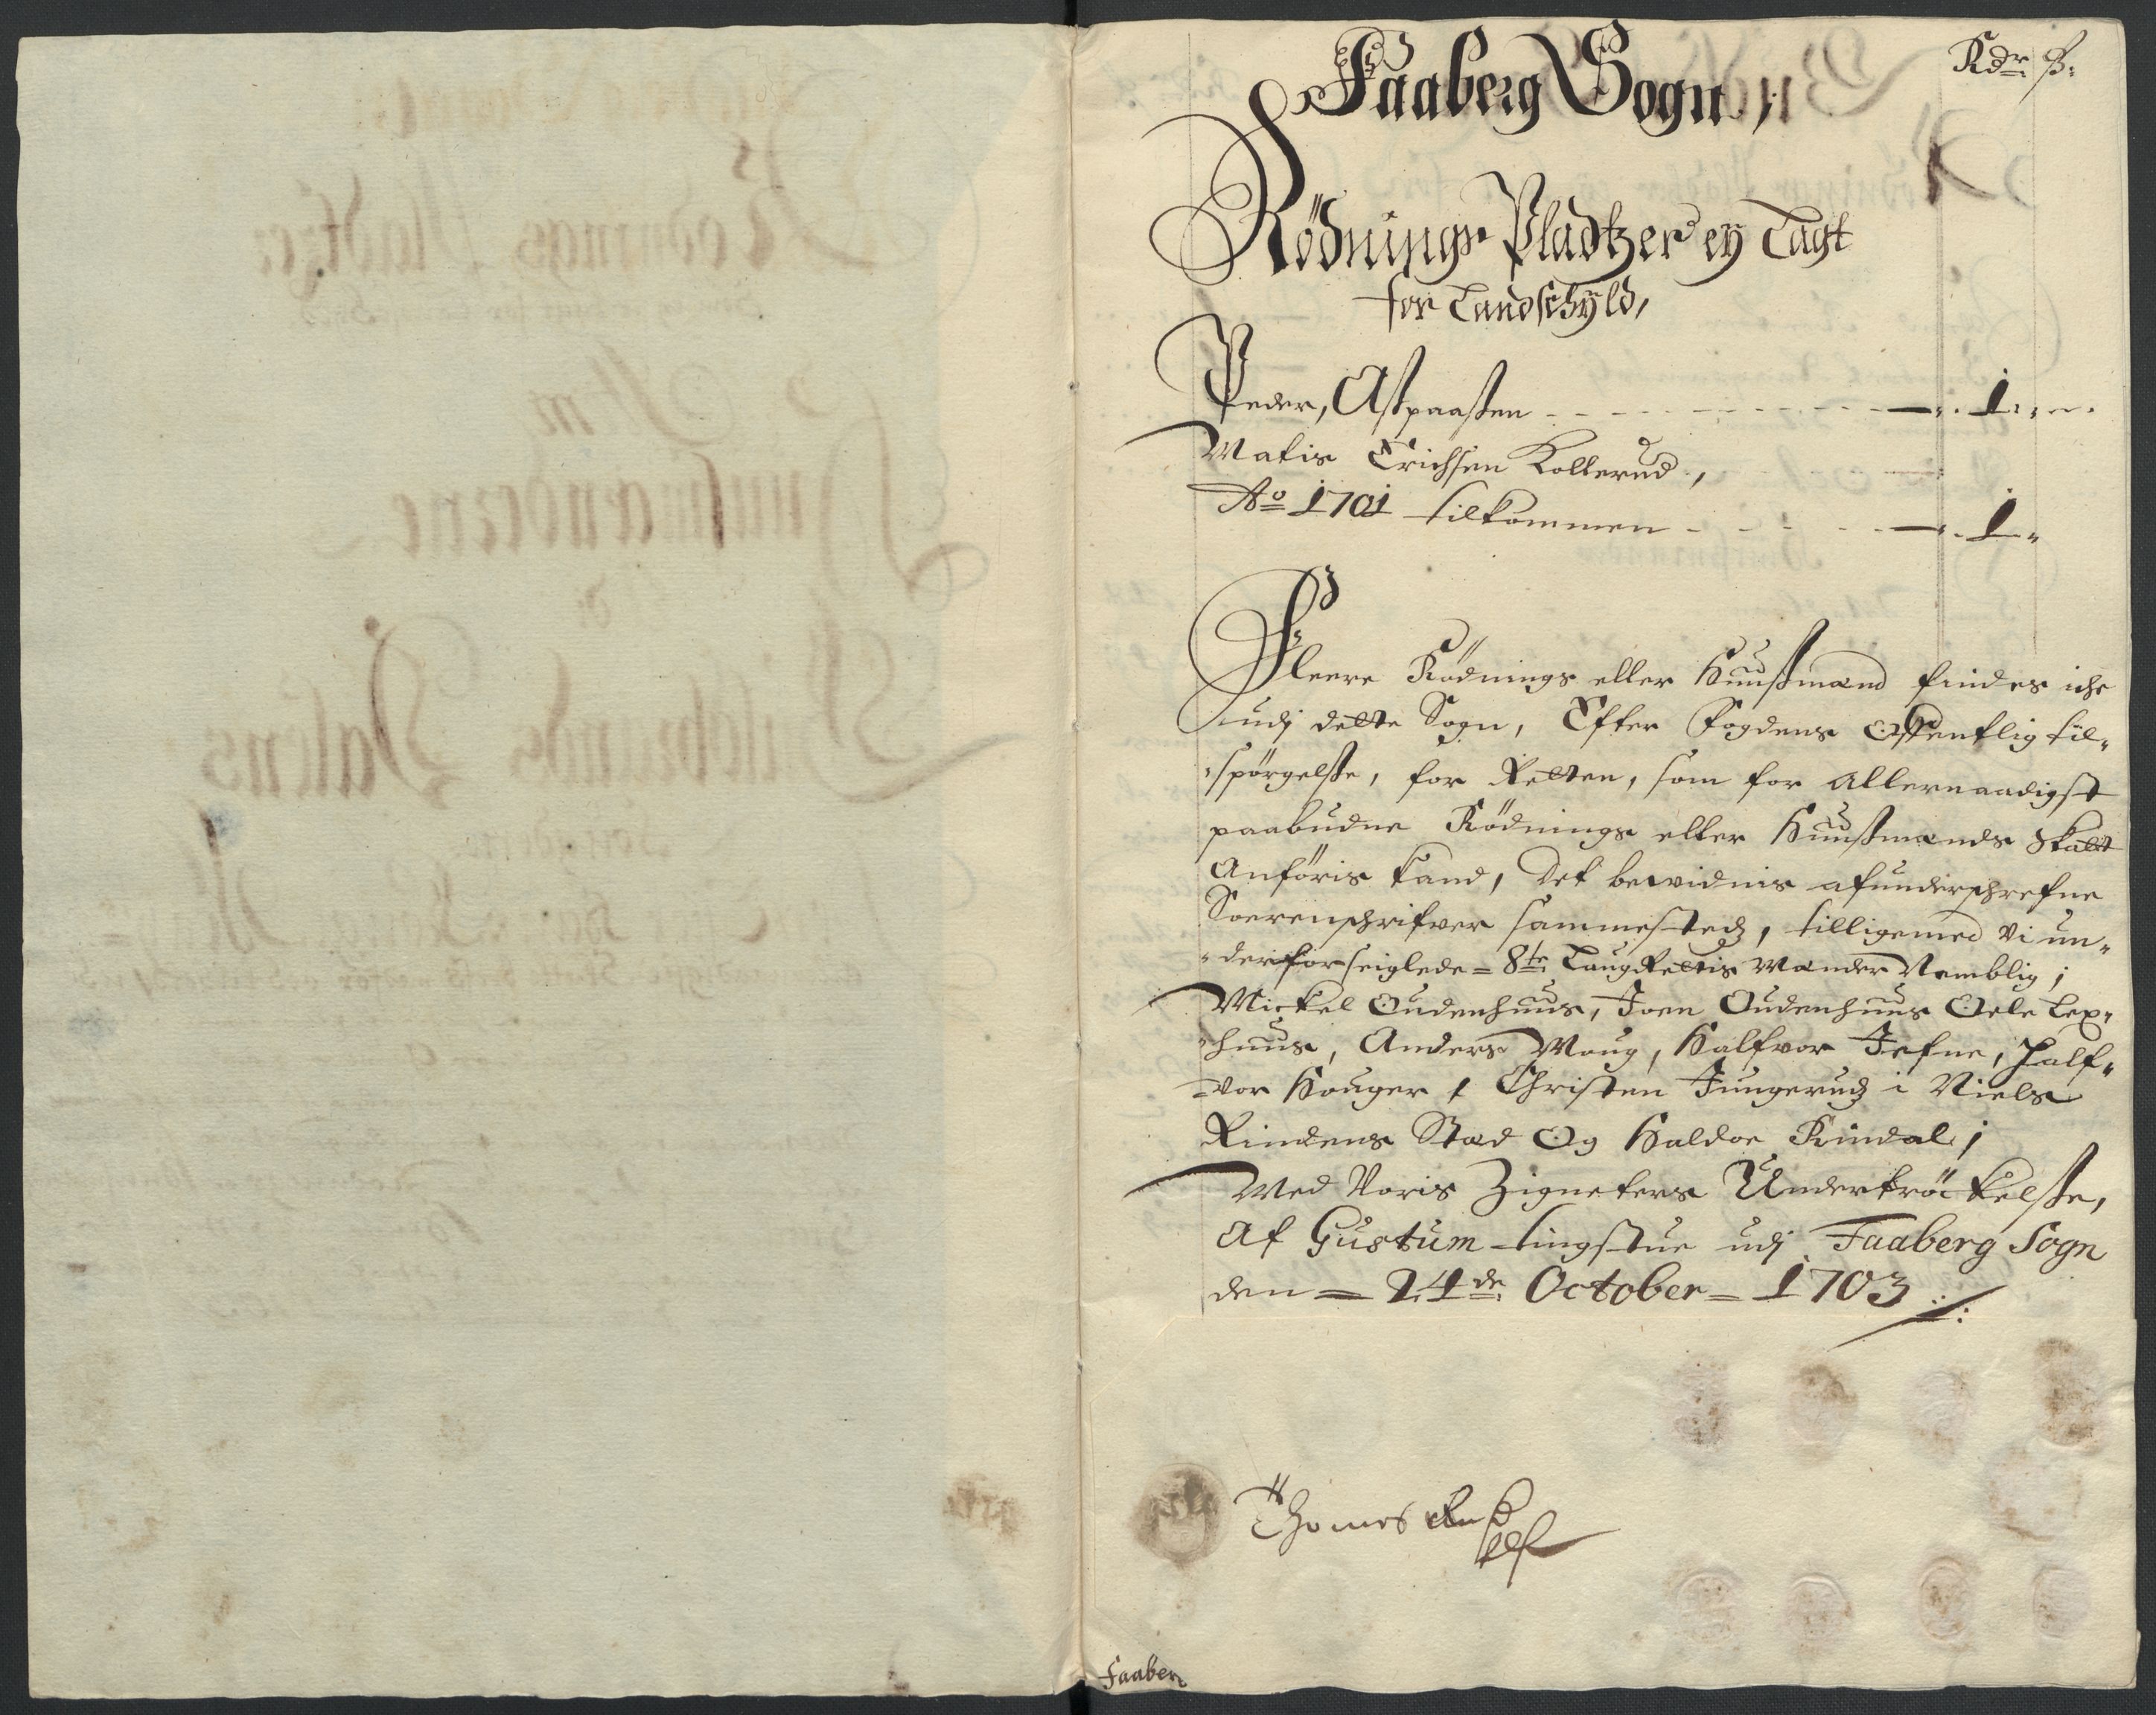 Rdr ß:
Faaberg Sogn
Rödnings Pladtzer ey Lagt
for Landschÿld,
Peder, Astpaasten - - - 1
Matis Erichsen Kollerud,
Ao 1701 tilkommen - - - 1
Fleere Rödnings eller Huusmænd findes iche
udj dette Sogn, Efter Fogdens offentlig til-
spörgelsse, for Retten, som for allernaadigst
paabudne Rödnings eller Huusmænds Skatt
Anföris kand, Det bewidnis af underschrefne
Soerenschrifver sammesteds, tilligemed vi un-
derforseiglede = 8te LaugRettis Mænder Nemblig;
Mickel Oudenhuus, Joen Oudenhuus Oele Lex-
huus, Anders Moug, Halfvor Jefne, Half-
vor Houger, Christen Jungerud, Niels
Rindens Stad Og Haldor Rindal;
Med Voris Zigneters Undertröckelsse,
Af Gustum tingstue udj Faaberg Sogn
den = 24de October = 1703
Thomes
Faaber